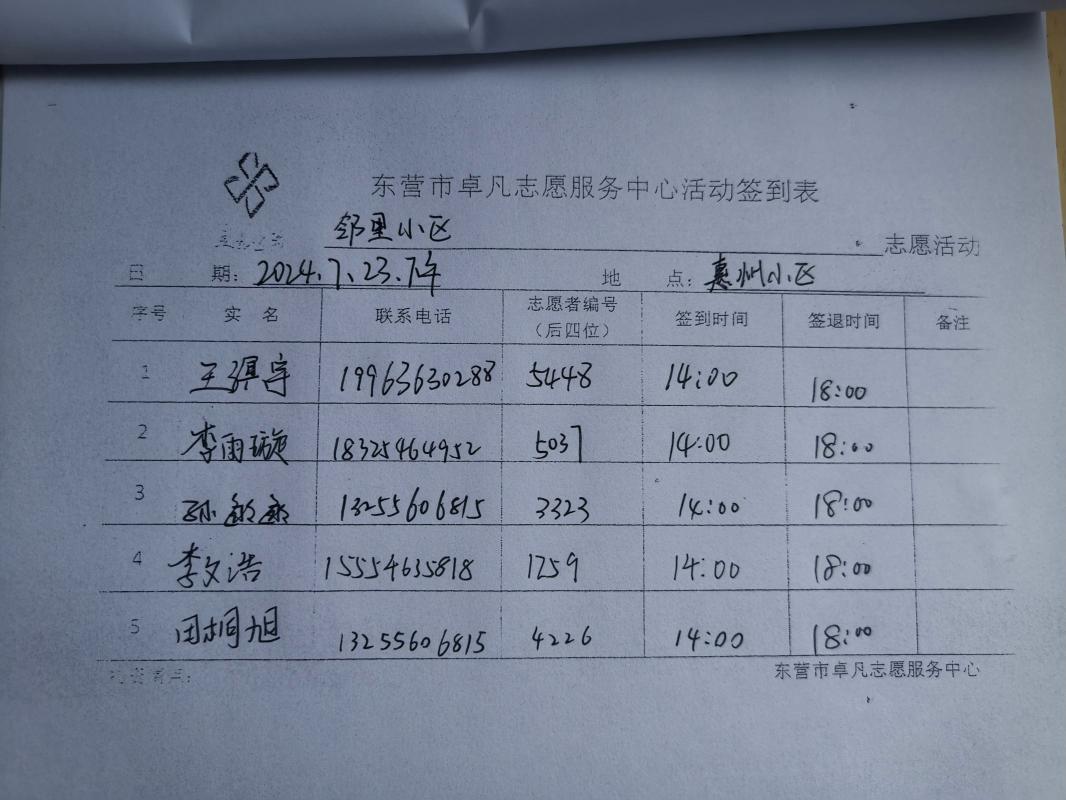 东营市卓凡志愿服务中心活动签到表
邻里小区 志愿活动
日 期: 2024.7.23.下午 地 点: 惠州小区
序号 实 名 联系电话 志愿者编号（后四位） 签到时间 签退时间 备注
1 王淇宇 19963630288 5448 14:00 18:00
2 李雨璇 18325464952 5037 14:00 18:00
3 孙 13255606815 3323 14:00 18:00
4 李文浩 15554635818 1259 14:00 18:00
5 田桐旭 13255606815 4226 14:00 18:00
东营市卓凡志愿服务中心